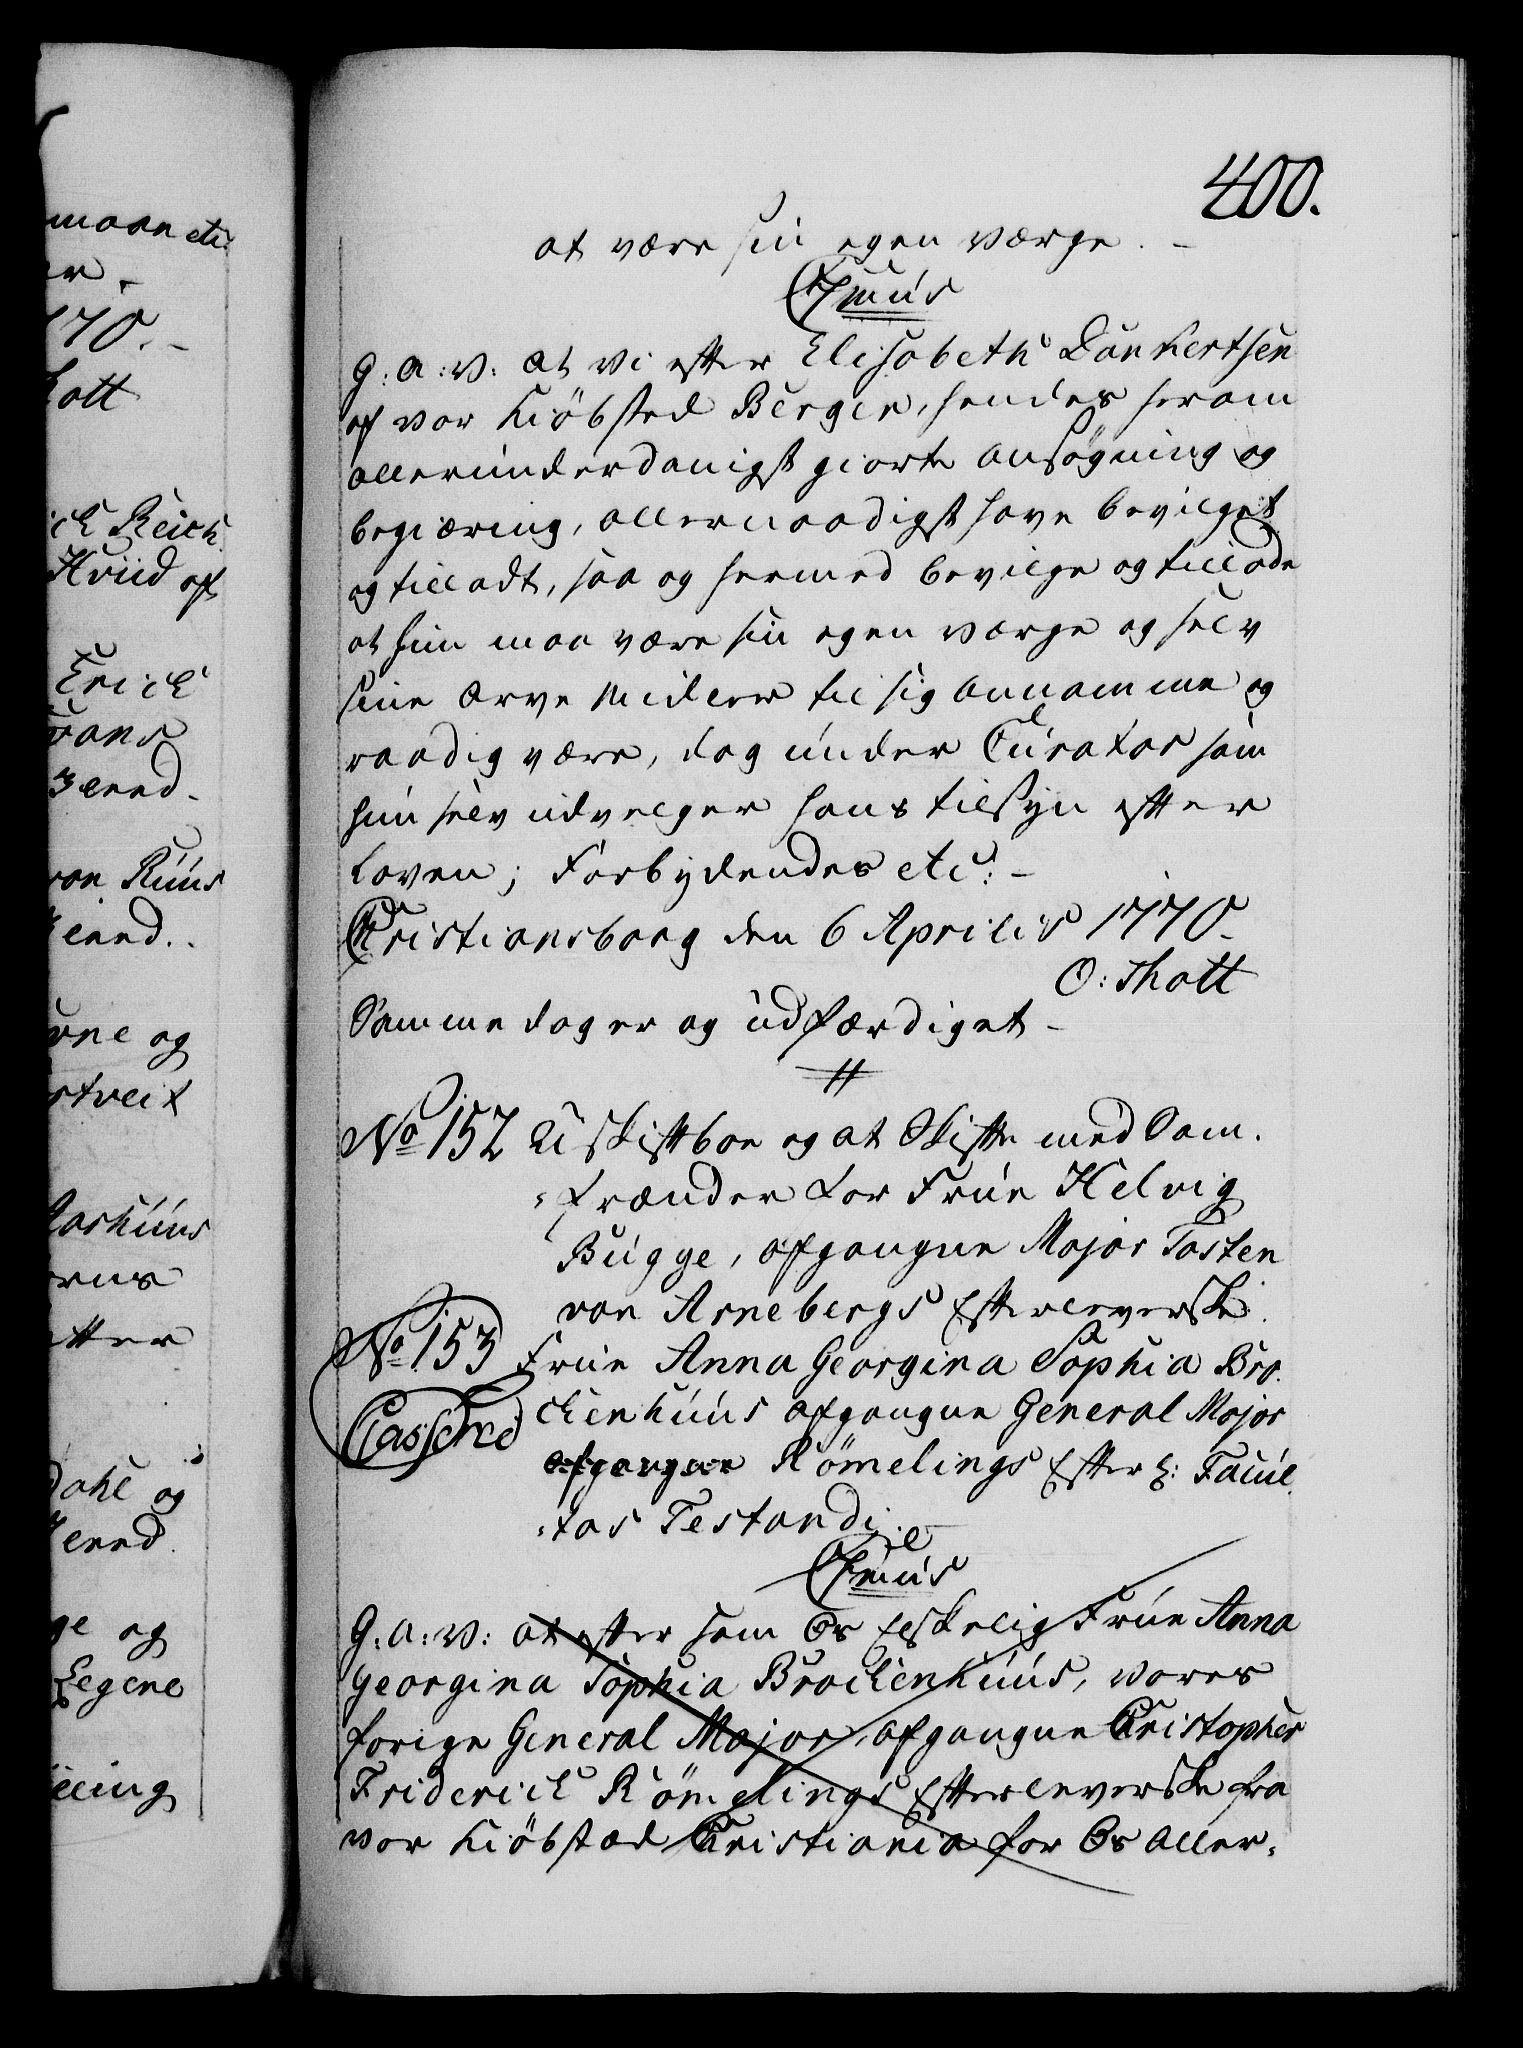 400.
at være sin egen værge. –
C7mus
G: a: v: at vi efter Elisabeth Dankertsen
af vor Kiöbsted Bergen, hendes herom
allerunderdanigst giorte ansøgning og
begiæring, allernaadigst have bevilget
og tilladt, saa og hermed bevilge og tillade
at hun maa være sin egen værge og selv
sine Arve Midler til sig annamme og
raadig være, dog under Curator som
hun selv udvelger hans tilsyn efter
Loven; Forbydendes etc: –
Christiansborg den 6 Aprilis 1770.
O: Thott
Samme dag er og udfærdiget –
No 152 Uskiftboe og at Skifte med Sam-
frænder for Frue Helvig
Bugge, afgangne Major Tosten
von Arnebergs Efterleverske.
No 153 Frue Anna Georgina Sophia Bro-
Cassered ckenhuus afgangne General Major
afgangne Römelings Efterl: Facul-
tas Testandi. –
C7mus
G: a: v: at efter som Os Elskelig Frue Anna
Georgina Sophia Brockenhuus, vores
forige General Major, afgangne Christopher
Friderich Römelings Efterleverske fra
vor Kiöbstæd Christiania for Os aller-
maan etc:
er –
1770. –
Thott
ich Reich
Hviid af
Erich
von Ruus
og
Dahl og
og